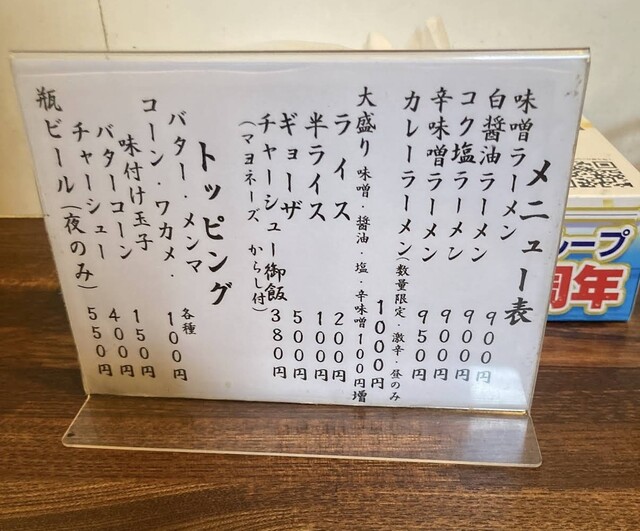 メニュー表
味噌ラーメン 900円
白醤油ラーメン 900円
コク塩ラーメン 900円
辛味噌ラーメン 950円
カレーラーメン(数量限定・激辛・昼のみ)
1000円
大盛り 味噌・醤油・塩・辛味噌100円増
ライス 200円
半ライス 100円
ギョーザ 500円
チャーシュー御飯 380円
(マヨネーズ からし付)
トッピング
バター・メンマ
コーン・ワカメ・ 各種 100円
味付け玉子 150円
バターコーン 400円
チャーシュー 550円
瓶ビール(夜のみ)
ループ
周年